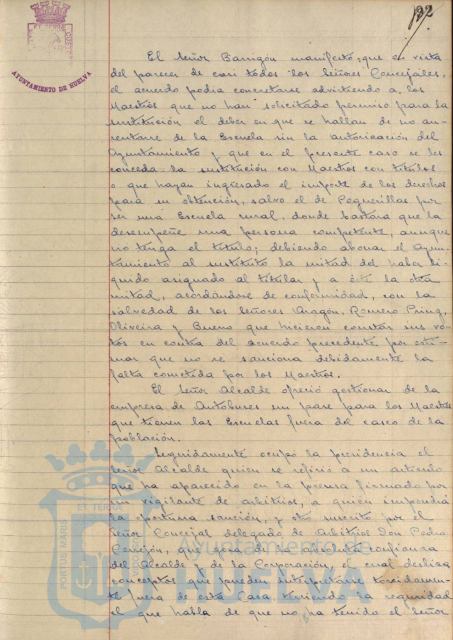 132
AYUNTAMIENTO DE HUELVA
El Señor Barrigón manifestó, que en vista
del parecer de casi todos los Señores Concejales,
el acuerdo podía concretarse advirtiendo a los
Maestros que no han solicitado permiso para la
sustitución el deber en que se hallan de no au-
sentarse de la Escuela sin la autorización del
Ayuntamiento y que en el presente caso se les
conceda la sustitución con Maestros con títulos
o que hayan ingresado el importe de los derechos
para su obtención, salvo el de Peguerillas por
ser una Escuela rural, donde bastará que la
desempeñe una persona competente, aunque
no tenga el título; debiendo abonar el Ayun-
tamiento al sustituto la mitad del haber lí-
quido asignado al titular y a éste la otra
mitad, acordándose de conformidad, con la
salvedad de los Señores Aragón, Romero Pring,
Oliveira y Bueno que hicieron constar sus vo-
tos en contra del acuerdo precedente por esti-
mar que no se sanciona debidamente la
falta cometida por los Maestros.
El Señor Alcalde ofreció gestionar de la
empresa de Autobuses un pase para los Maestros
que tienen las Escuelas fuera del casco de la
población.
Seguidamente ocupó la presidencia el
Señor Alcalde quien se refirió a un artículo
que ha aparecido en la prensa firmado por
un vigilante de arbitrios, a quien impondrá
la oportuna sanción, y otro suscrito por el
Señor Concejal delegado de Arbitrios Don Pedro
Cerrejón, que goza de la absoluta confianza
del Alcalde y de la Corporación, el cual desliza
conceptos que pueden interpretarse torcidamen-
te fuera de esta Casa, teniendo la seguridad
el que habla de que no ha tenido el Señor
Ayuntamiento de
HUELVA
PORTUS MARIS